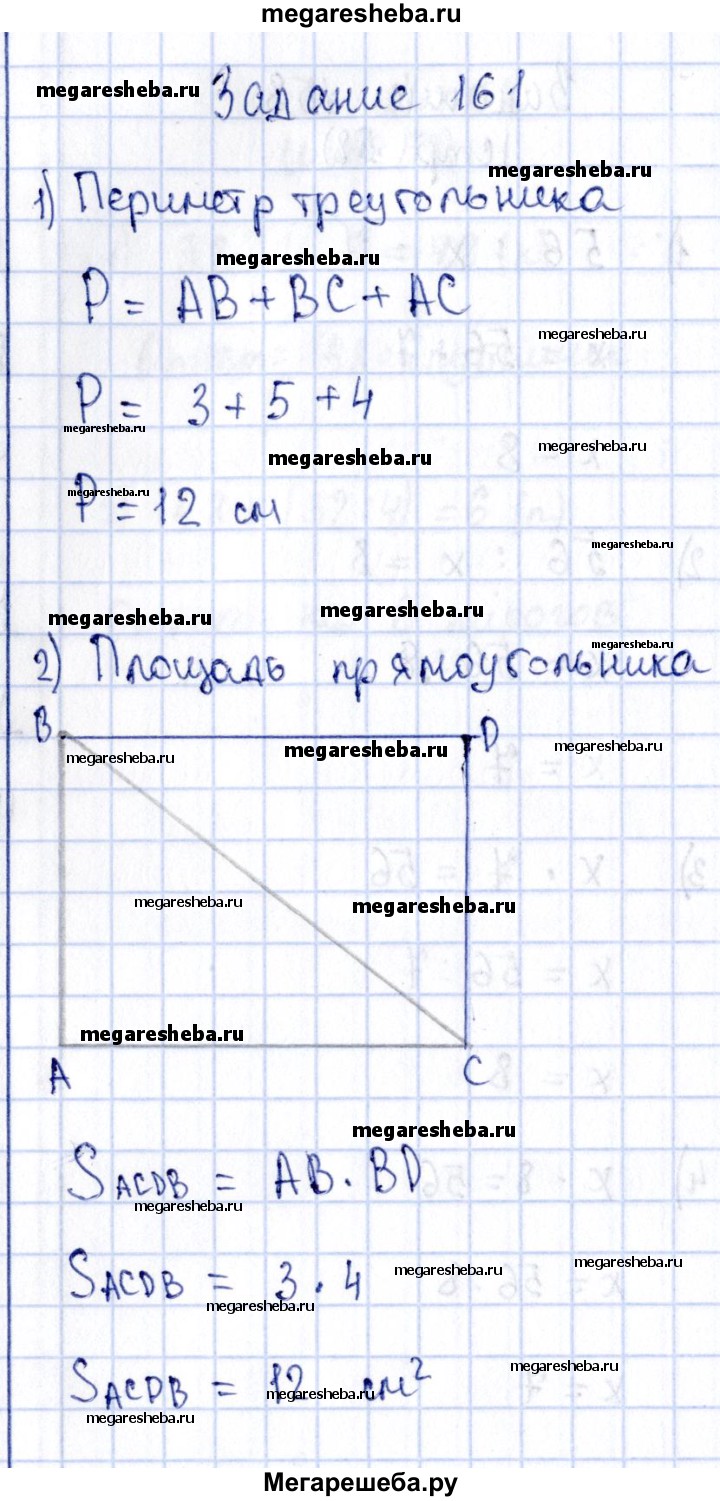 megaresheba.ru
megaresheba.ru Задание 161
megaresheba.ru
1) Периметр треугольника
megaresheba.ru
P = AB + BC + AC
megaresheba.ru
P = 3 + 5 + 4
megaresheba.ru
megaresheba.ru
megaresheba.ru
megaresheba.ru
P = 12 см
megaresheba.ru
megaresheba.ru
megaresheba.ru
megaresheba.ru
2) Площадь прямоугольника
B D
megaresheba.ru
megaresheba.ru
megaresheba.ru
megaresheba.ru
megaresheba.ru
megaresheba.ru
A C
megaresheba.ru
SACDB = AB · BD
megaresheba.ru
megaresheba.ru
megaresheba.ru
SACDB = 3 · 4
megaresheba.ru
megaresheba.ru
SACDB = 12 см²
megaresheba.ru
megaresheba.ru
Мегарешеба.ру